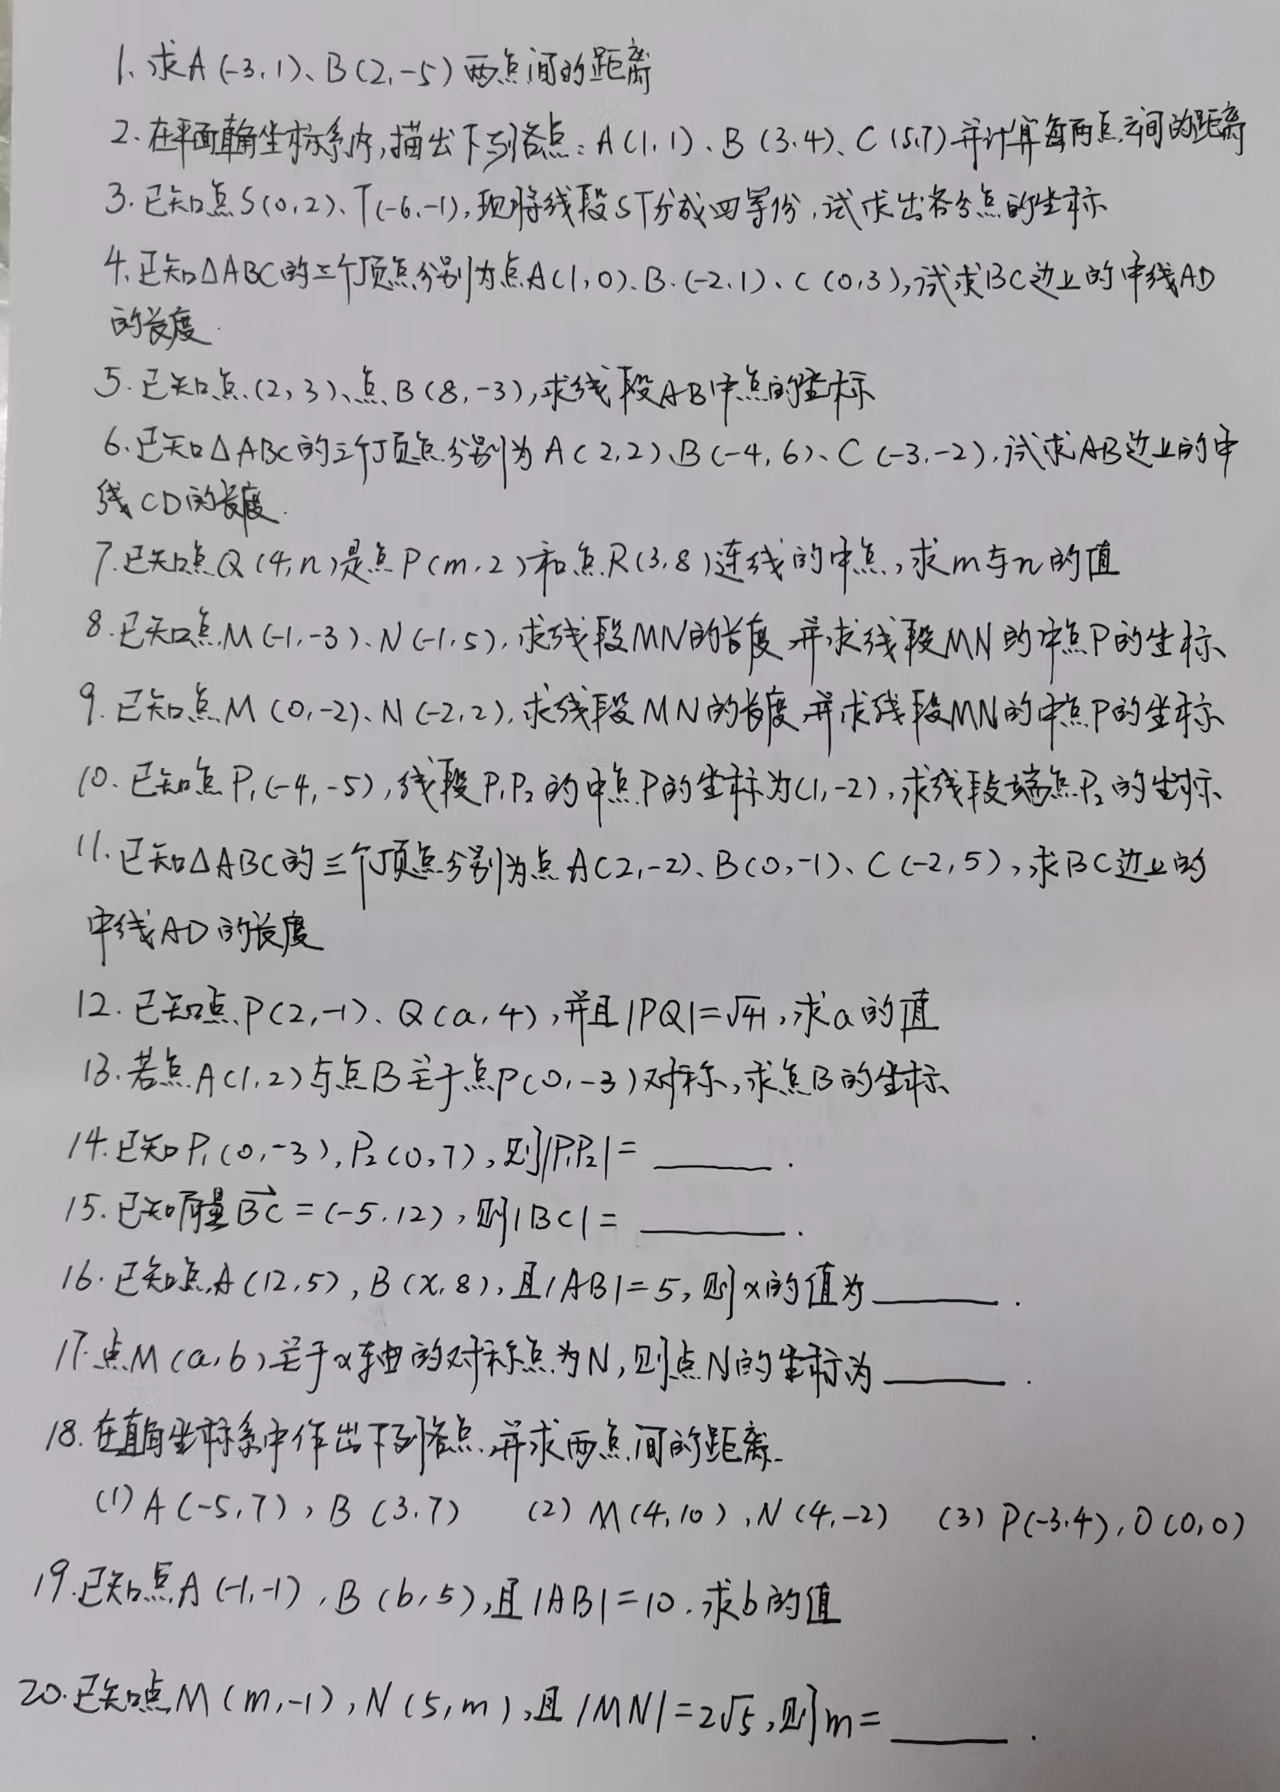 1、求A(-3,1)、B(2,-5)两点间的距离
2.在平面直角坐标系内,描出下列各点:A(1,1)、B(3,4)、C(5,7)并计算每两点之间的距离
3.已知点S(0,2)、T(-6,-1),现将线段ST分成四等份,试求出各分点的坐标
4.已知△ABC的三个顶点分别为点A(1,0)、B.(-2,1)、C(0,3),试求BC边上的中线AD
的长度.
5.已知点(2,3)、点B(8,-3),求线段AB中点的坐标
6.已知△ABC的三个顶点分别为A(2,2)、B(-4,6)、C(-3,-2),试求AB边上的中
线CD的长度.
7.已知点Q(4,n)是点P(m,2)和点R(3,8)连线的中点,求m与n的值
8.已知点M(-1,-3)、N(-1,5),求线段MN的长度,并求线段MN的中点P的坐标
9.已知点M(0,-2)、N(-2,2),求线段MN的长度,并求线段MN的中点P的坐标
10.已知点P₁(-4,-5),线段P₁P₂的中点P的坐标为(1,-2),求线段端点P₂的坐标
11.已知△ABC的三个顶点分别为点A(2,-2)、B(0,-1)、C(-2,5),求BC边上的
中线AD的长度
12.已知点P(2,-1)、Q(a,4),并且|PQ|=√41,求a的值
13.若点A(1,2)与点B关于点P(0,-3)对称,求点B的坐标
14.已知P₁(0,-3),P₂(0,7),则|P₁P₂|=______.
15.已知向量BC=(-5,12),则|BC|=______.
16.已知点A(12,5),B(x,8),且|AB|=5,则x的值为______.
17.点M(a,b)关于x轴的对称点为N,则点N的坐标为______.
18.在直角坐标系中作出下列各点,并求两点间的距离.
(1)A(-5,7),B(3,7) (2)M(4,10),N(4,-2) (3)P(-3,4),O(0,0)
19.已知点A(-1,-1),B(b,5),且|AB|=10.求b的值
20.已知点M(m,-1),N(5,m),且|MN|=2√5,则m=______.